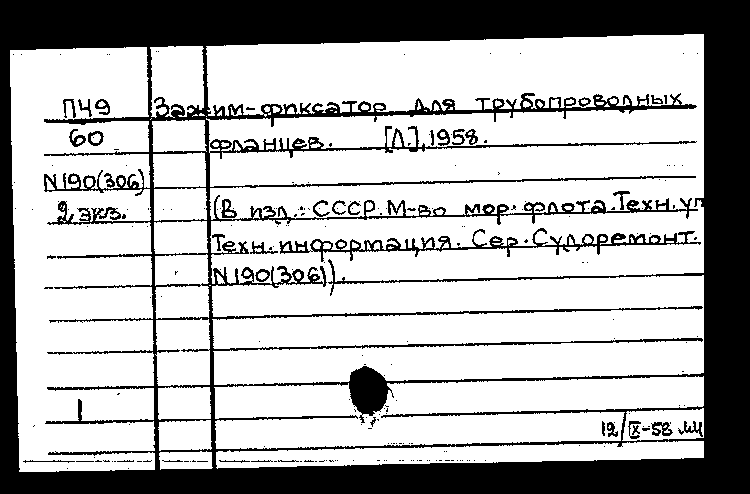 П49 Зажим-фиксатор для трубопроводных
60 фланцев. [Л.], 1958.
N190(306)
2 экз. (В изд.: СССР. М-во мор. флота. Техн. уп
Техн. информация. Сер. Судоремонт.
N190(306)).
1
12/IX-58